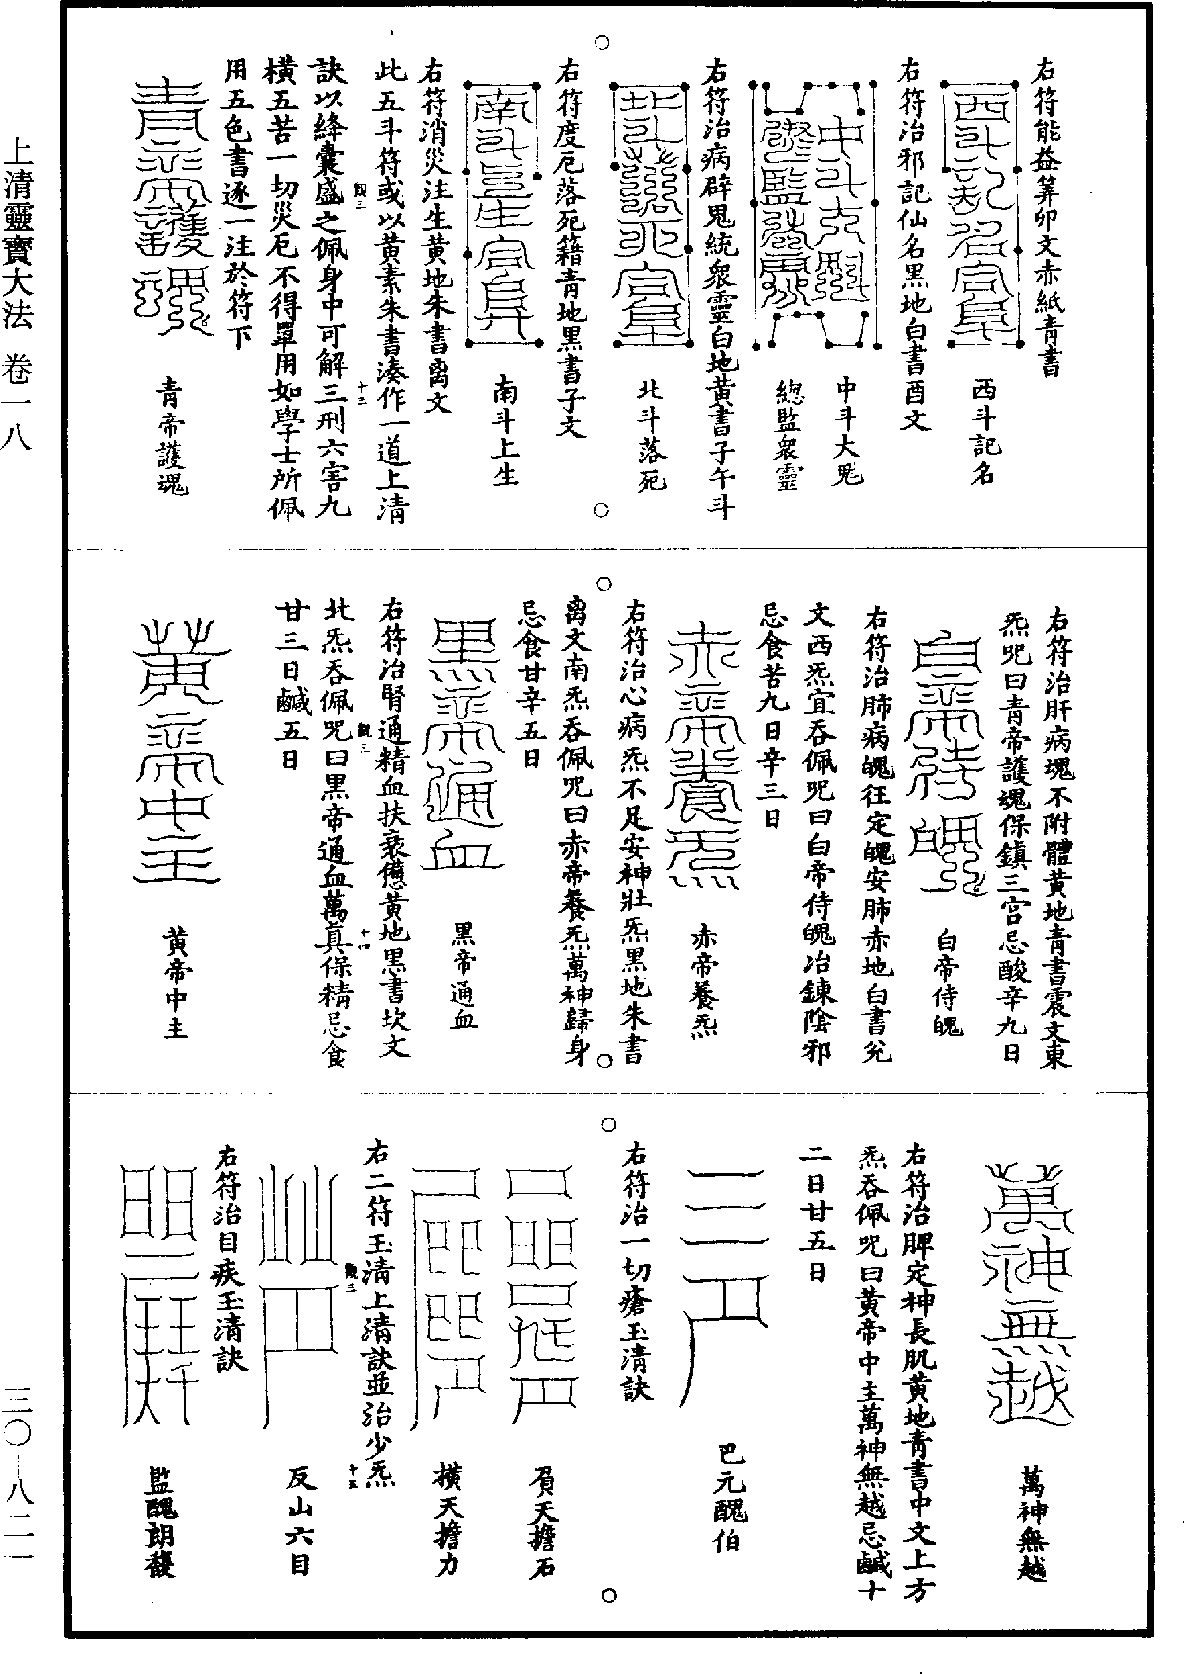 上清靈寶大法 卷一八
三〇—八二一
右符能益筭卯文赤紙青書
西斗記名
右符治邪記仙名黑地白書酉文
中斗大魁
總監眾靈
右符治病辟鬼統眾靈白地黃書子午斗
北斗落死
右符度厄落死籍青地黑書子文
南斗上生
右符消災注生黃地朱書离文
此五斗符或以黃素朱書湊作一道上清
觀三
十三
訣以絳囊盛之佩身中可解三刑六害九
橫五苦一切災厄不得單用如學士所佩
用五色書逐一注於符下
青帝護魂
右符治肝病塊不附體黃地青書震文東
炁咒曰青帝護魂保鎮三宮忌酸辛九日
白帝侍魄
右符治肺病魄狂定魄安肺赤地白書兌
文西炁宜吞佩咒曰白帝侍魄冶鍊陰邪
忌食苦九日辛三日
赤帝養炁
右符治心病炁不足安神壯炁黑地朱書
离文南炁吞佩咒曰赤帝養炁萬神歸身
忌食甘辛五日
黑帝通血
右符治腎通精血扶衰憊黃地黑書坎文
觀三
十四
北炁吞佩咒曰黑帝通血萬真保精忌食
甘三日鹹五日
黃帝中主
萬神無越
右符治脾定神長肌黃地青書中文上方
炁吞佩咒曰黃帝中主萬神無越忌鹹十
二日甘五日
巴元醜伯
右符治一切瘡玉清訣
負天擔石
橫天擔力
右二符玉清上清訣並治少炁
觀三
十五
反山六目
右符治目疾玉清訣
監醜朗馥